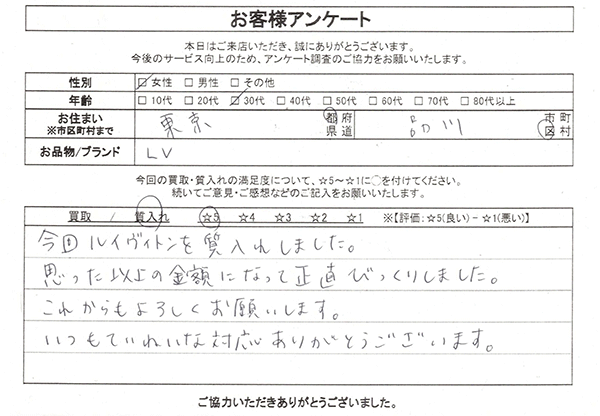 お客様アンケート
本日はご来店いただき、誠にありがとうございます。
今後のサービス向上のため、アンケート調査のご協力をお願いいたします。
性別 ☑ 女性 □ 男性 □ その他
年齢 □ 10代 □ 20代 ☑ 30代 □ 40代 □ 50代 □ 60代 □ 70代 □ 80代以上
お住まい 東京 都府 品川 市町
※市区町村まで 県道 区村
お品物/ブランド LV
今回の買取・質入れの満足度について、☆5~☆1に○を付けてください。
続いてご意見・ご感想などのご記入をお願いいたします。
買取 / 質入れ ☆5 ☆4 ☆3 ☆2 ☆1 ※【評価:☆5(良い)-☆1(悪い)】
今回ルイヴィトンを質入れしました。
思った以上の金額になって正直びっくりしました。
これからもよろしくお願いします。
いつもていねいな対応ありがとうございます。
ご協力いただきありがとうございました。